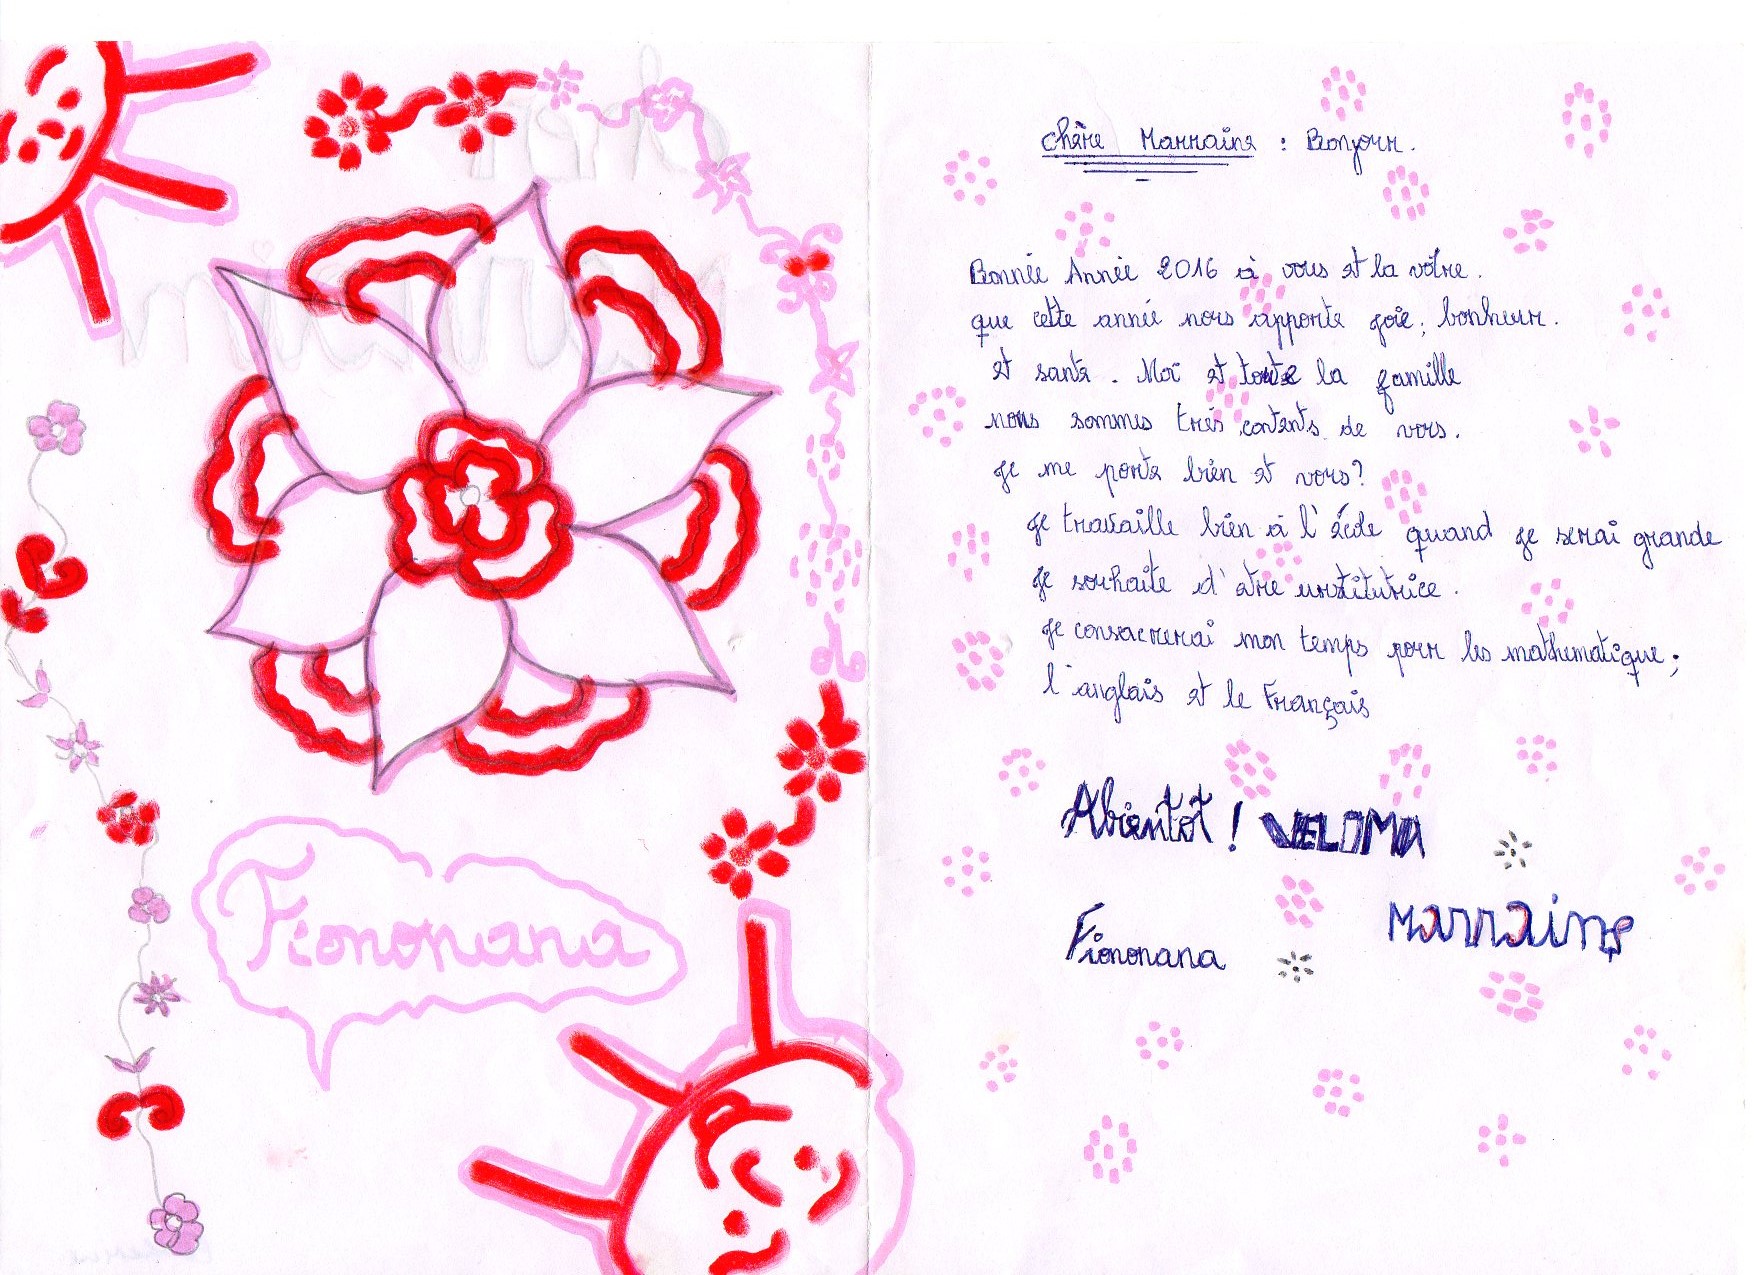 Fiononana
chère Marraine : Bonjour.
Bonnée Année 2016 à vous et la vôtre.
que cette année nous apporte joie, bonheur.
et santé. Moi et toute la famille
nous sommes très contents de vous.
je me porte bien et vous?
je travaille bien à l'école quand je serai grande
je souhaite d'être institutrice.
je consacrerai mon temps pour les mathematique;
l'anglais et le Français
Abientôt ! VELOMA
Fiononana Marraine